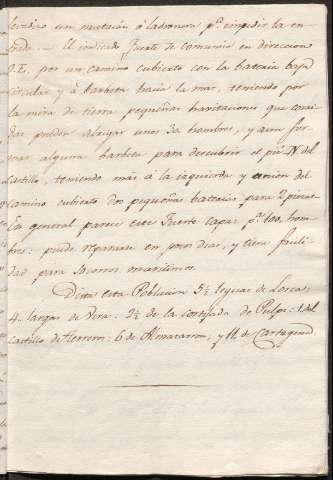 un mutacion ó ladronera pª. impedir la en-
trada. — El indicado Fuerte se comunica en direccion
O.E, por un camino cubierto con la bateria baja
circular y á barbeta hacia la mar, teniendo por
la mira de tierra pequeñas havitaciones que
pueden alvergar unos 30 hombres, y aun for-
mar alguna barbeta para descubrir el pie N del
Castillo, teniendo más á la izquierda y union del
camino cubierto dos pequeñas baterias para 2 piezas
En general parece este Fuerte capaz pª. 100, hom-
bres: puede repararse en pocos dias, y tiene facili-
dad para socorros maritimos.
Dista esta Poblacion 5½ leguas de Lorca:
4. largas de Vera: 3½ de la cortijada de Pulpi: 1. del
Castillo de Terreros: 6 de Almazarron; y 11. de Cartagena